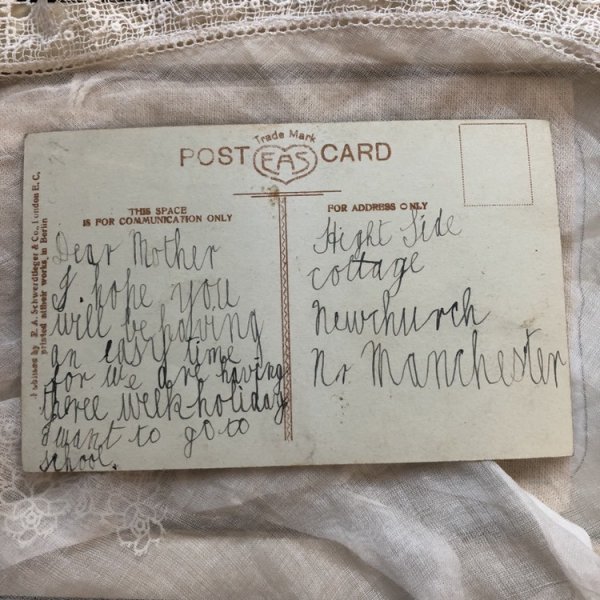 Trade Mark
POST EAS CARD
THIS SPACE
IS FOR COMMUNICATION ONLY
Dear Mother
I hope you
will be having
an easy time
for we are having
three week holiday
I want to go to
school.
FOR ADDRESS ONLY
Hight Side
cottage
Newchurch
Nr Manchester
Published by E. A. Schwerdtfeger & Co., London E.C.
printed at their works in Berlin